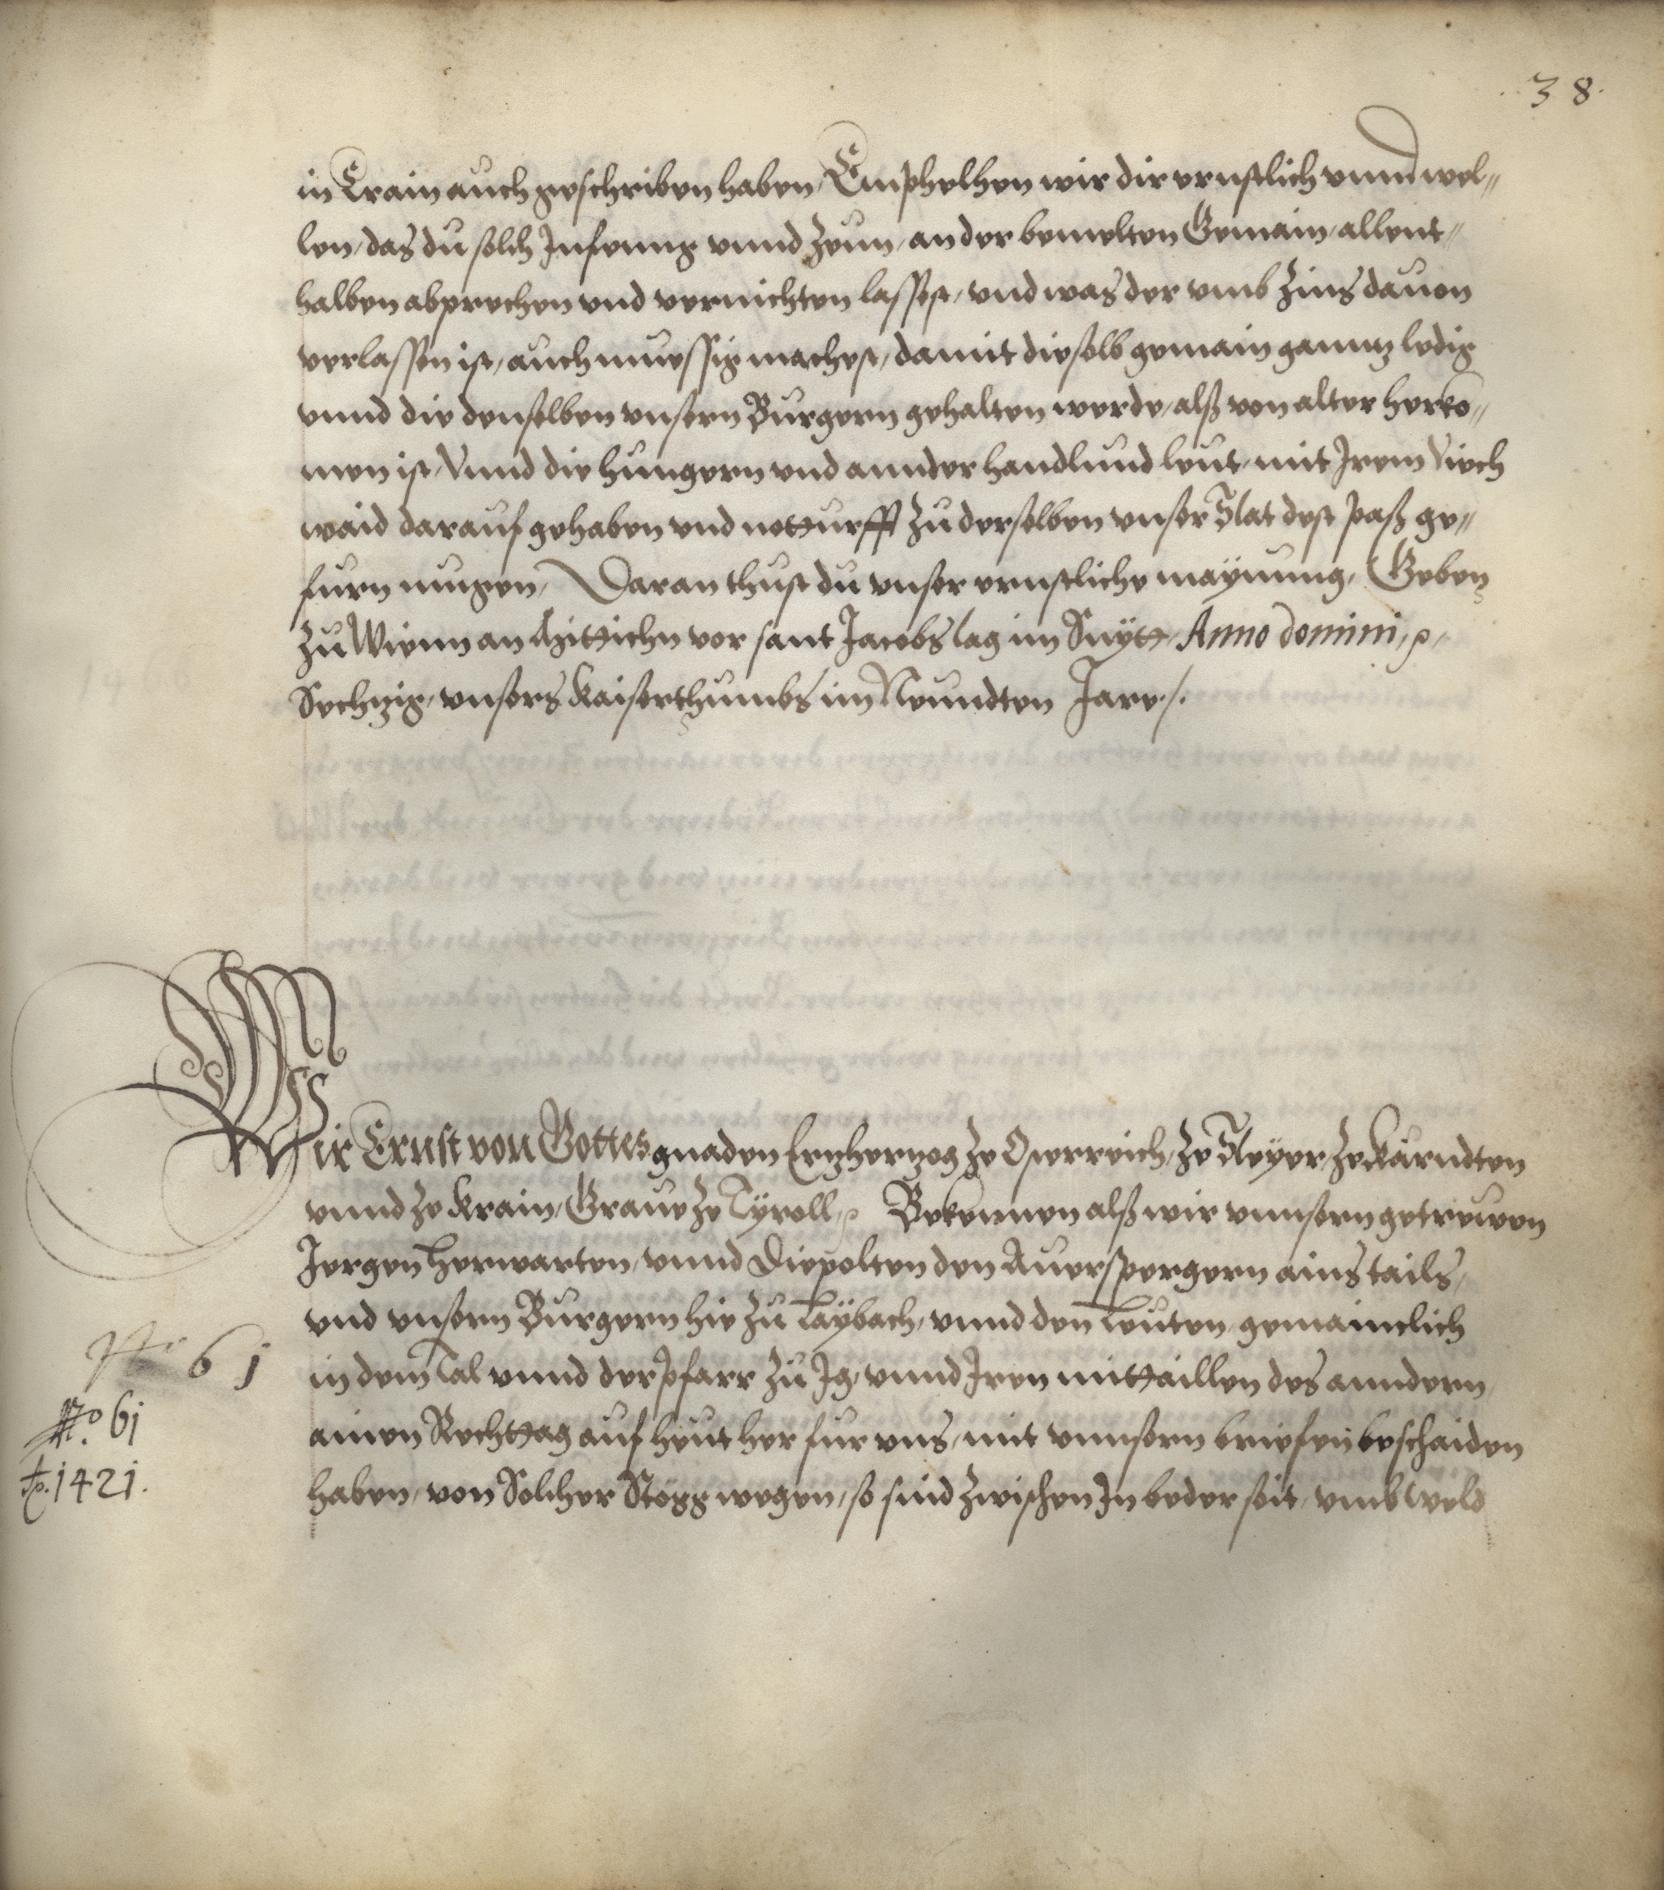 38.
in Crain auch geschriben haben, Emphelhen wir dir ernstlich vnnd wel„
len, das du solch Infenng vnnd Zeun, an der bemelten Gemain, allent„
halben abprechen vnd vernichten lassest, vnd was der vmb Zins dauon
verlassen ist, auch muessig machest, damit dieselb gemain ganntz ledig
vnnd die denselben vnsern Burgern gehalten werde, alß von alter herko„
men ist, Vnnd die Hungern vnd annder handlund leut, mit Irem Viech
waid darauf gehaben vnd notturfft zu derselben vnser Stat dest paß ge„
furn mugen, Daran thust du vnser ernstliche maynung, Geben
Zu Wienn an Mittichn vor sant Jacobs tag im Snytt, Anno domini, &c,
Sechtzig, vnsers Kaiserthumbs im Neundten Jare ./.
Wir Ernst von Gottes gnaden Ertzhertzog ze Osterreich, ze Steyer, ze Kärndten
vnnd ze Krain, Graue ze Tyroll, &c Bekennen alß wir vnnsern getrewen
Jorgen Herwarten, vnnd Diepolten den Auerspergern ains tails,
vnd vnsern Burgern hie zu Laybach, vnnd den Leuten gemainclich
in dem Tal vnnd der Pfarr zu Jg, vnnd Iren mittaillen des anndern,
ainen Rechttag auf heut her fur vns, mit vnnsern briefen beschaiden
haben, von Solcher Stögg wegen, so sind zwischen In beder seit, vmb Weld
No 61
No. 61
Ao. 1421.